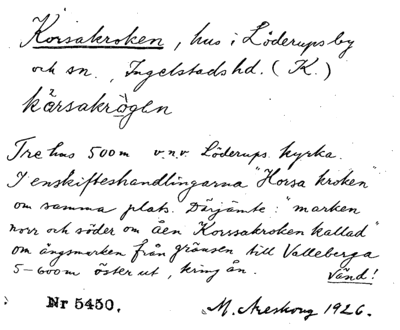 Korsakroken, hus i Löderups by
och sn., Ingelstads hd. (K.)
kå̈rsakrǫgen
Tre hus 500 m v.n.v. Löderups kyrka.
I enskifteshandlingarna "Horsa kroken"
om samma plats. Därjämte: "marken
norr och söder om åen Korssakroken kallad"
om ängsmarken från gränsen till Valleberga
5-600 m österut, kring ån. Vänd!
Nr 5450. M. Areskoug 1926.